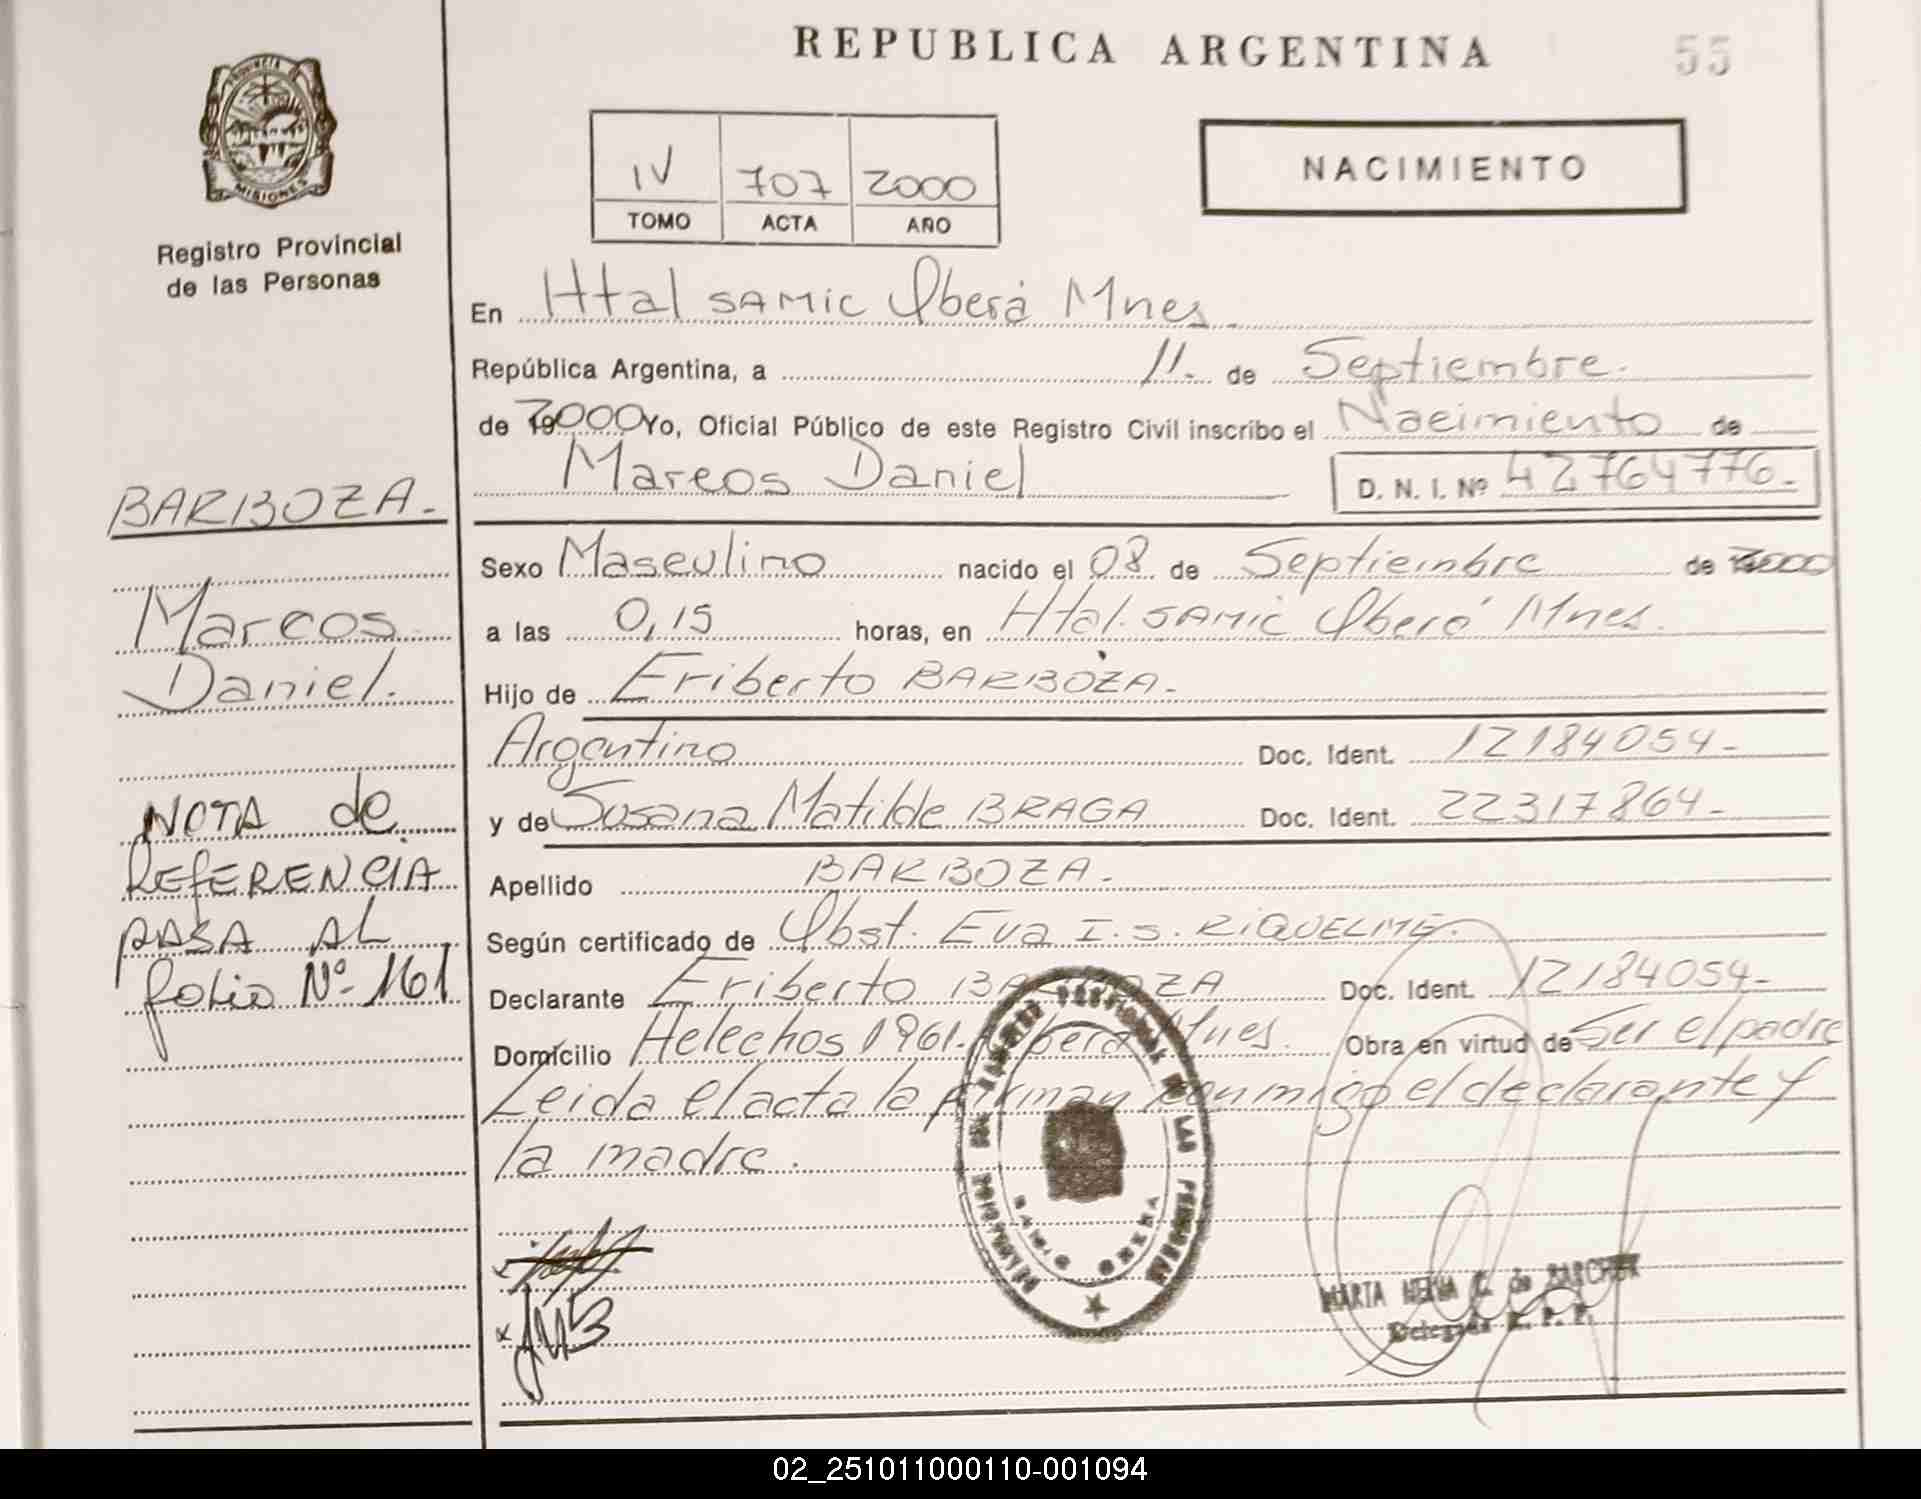 REPUBLICA ARGENTINA
55
PROVINCIA
MISIONES
Registro Provincial
de las Personas
IV 707 2000
TOMO ACTA AÑO
NACIMIENTO
En Htal SAMIC Oberá Mnes
República Argentina, a 11. de Septiembre.
de 2000 Yo, Oficial Público de este Registro Civil inscribo el Nacimiento de
Marcos Daniel D. N. I. Nº 42764776.-
BARBOZA.-
Marcos
Daniel.
NOTA de
REFERENCIA
PASA AL
folio Nº 161
Sexo Masculino nacido el 08 de Septiembre de 2000
a las 0,15 horas, en Htal. SAMIC Oberá Mnes.
Hijo de Eriberto BARBOZA.-
Argentino Doc. Ident. 12184054-
y de Susana Matilde BRAGA Doc. Ident. 22317864-
Apellido BARBOZA.-
Según certificado de Obst. Eva I. S. RIQUELME.
Declarante Eriberto BARBOZA Doc. Ident. 12184054-
Domicilio Helechos 1961. Oberá Mnes. Obra en virtud de Ser el padre
Leida el acta la firman conmigo el declarante y
la madre.
MARTA C. de
Delegada R. P. P.
02_251011000110-001094